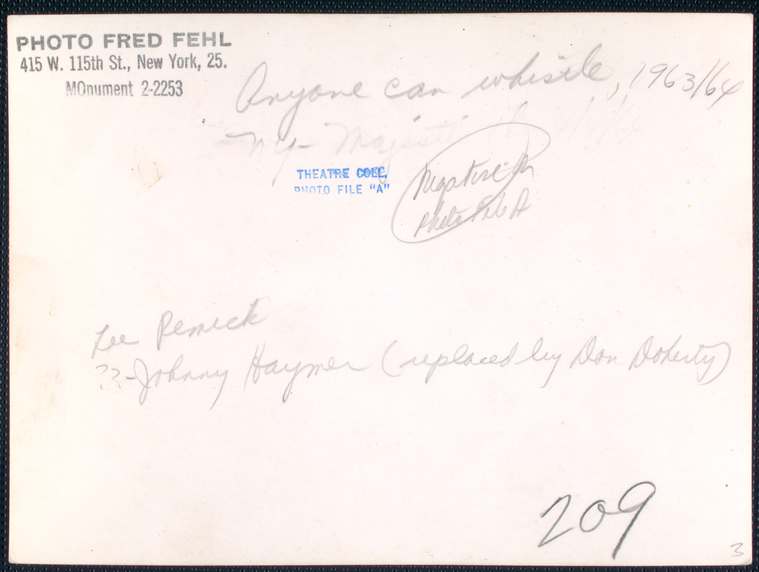 PHOTO FRED FEHL
415 W. 115th St., New York, 25.
MOnument 2-2253
Anyone can whistle, 1963/64
NY - Majestic
THEATRE COLL.
PHOTO FILE "A"
Negative in
Photo File A
Lee Remick
??-Johnny Haymer (replaced by Don Doherty)
209
3